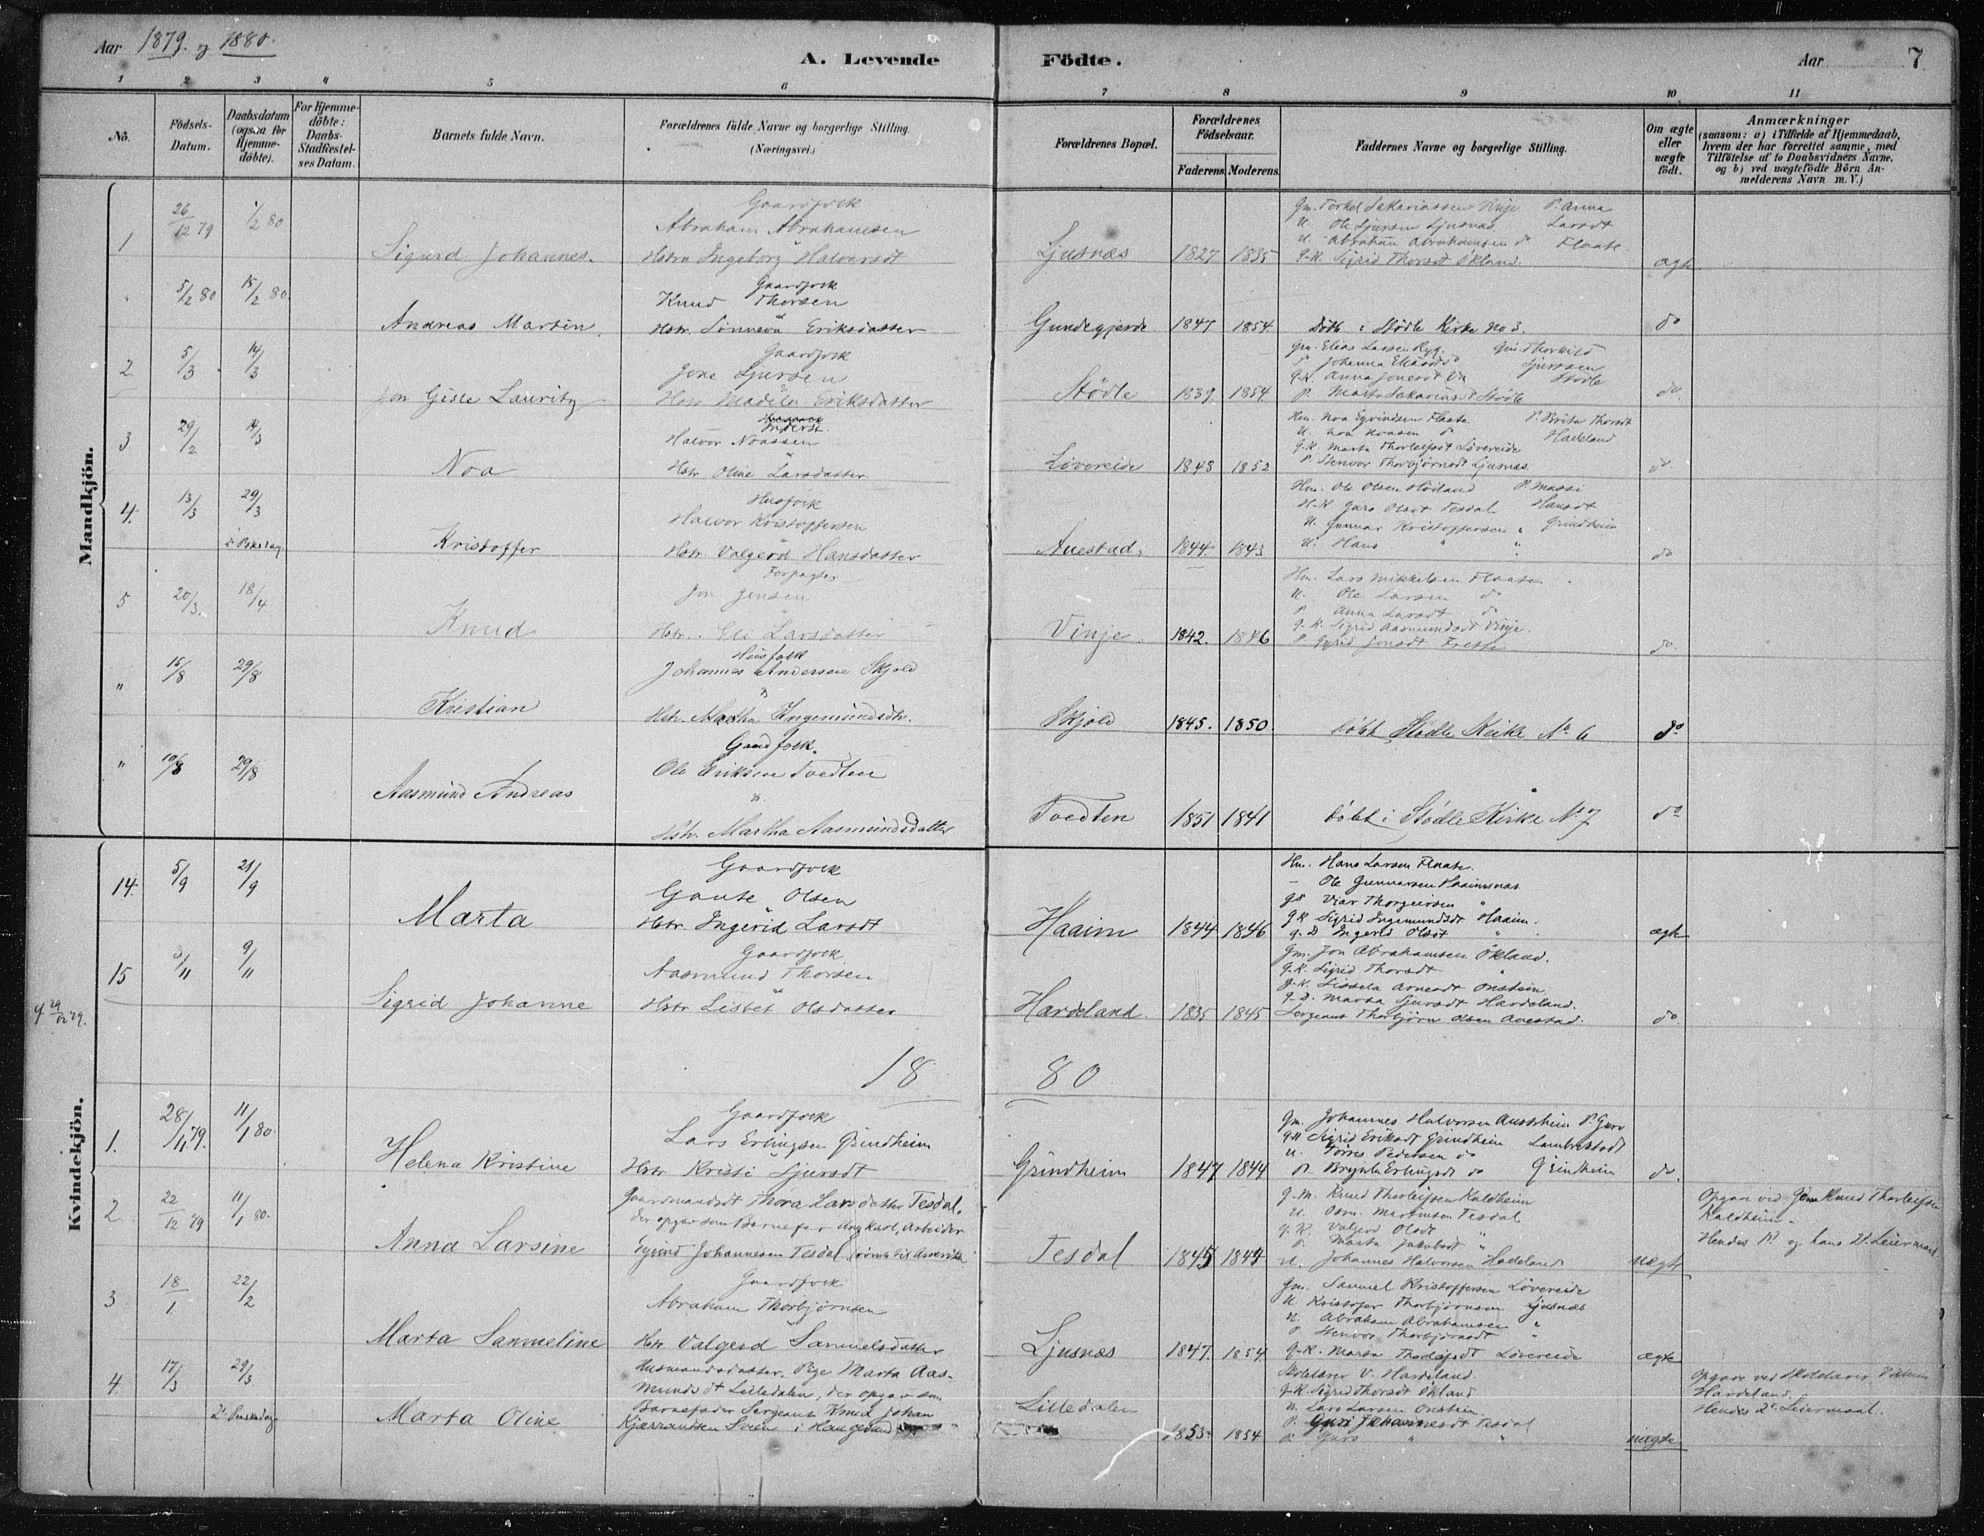 Aar 1879. og 1880.
A. Levende Födte.
Aar 7.
1 2 3 4 5 6 7 8 9 10 11
No.
Födsels-Datum.
Daabsdatum (ogsaa for Hjemme-döbte).
For Hjemme-döbte: Daabs-Stadfæstel-ses Datum.
Barnets fulde Navn.
Forældrenes fulde Navne og borgerlige Stilling. (Næringsvei.)
Forældrenes Bopæl.
Forældrenes Födselsaar.
Faderens Moderens.
Faddernes Navne og borgerlige Stilling.
Om ægte eller uægte födt.
Anmærkninger
(saasom: a) i Tilfælde af Hjemmedaab, hvem der har forrettet samme, med Tilföielse af to Daabsvidners Navne. og b) ved uægtefödte Börn An-melderens Navn m. V.)
Mandkjön.
1 26/12 79 1/2 80 Sigurd Johannes.
Gaardfolk
Abraham Abrahamsen
Hstr Ingeborg Halvorsdt
Ljusnæs 1827 1835
Gm. Torkel Sakariassen Vinje P. Anna
U. Ole Sjursen Ljusnæs Larsdt
U. Abraham Abrahamsen do Flaate.
G.K. Sigrid Thorsdt Økland
ægte
" 5/2 80 15/2 80. Andreas Martin.
Gaardfolk
Knud Thorsen
Hstr. Sønneva Eriksdatter
Gundegjerde 1847 1854
Døbt i Stødle Kirke No 3.
do
2 5/3 14/3 Jon Gisle Lauritz
Gaardfolk
Jone Sjursen
Hstr Madela Eriksdatter
Stødle 1839 1854
Gm. Elias Larsen Ryg. Gm. Thorkild
P. Johanna Eliasdt Sjurssen
G.K. Anna Jonesdt Stødle
P. Marta Sakariasdt Stødle
do.
3 29/2 14/3 Noa
Inderst.
Halvor Noassen
Hstr Oline Larsdatter.
Løvereide 1848 1852
Hm. Noa Eyvindsen Flaate P. Brita Thorsdt
U. Noa Noasen do Hadeland
G.K. Marta Thorleifsdt Løvereide
P. Stenvor Thorbjørnsdt Ljusnæs.
do
4. 13/3 29/3 2. Paaskedag Kristoffer
Husfolk
Halvor Kristoffersen
Hstr Valgerd Hansdatter
Auestad. 1844. 1843
Hm. Ole Olsen Høiland P. Massi
H.K. Guro Olsdt Tesdal Hansdt
U. Gunnar Kristoffersen " Grindheim
U. Hans " "
do
5 20/3. 18/4 Knud
Forpagter
Jon Jensen
Hstr. Eli Larsdatter
Vinje. 1842. 1846
Hm. Lars Mikkelsen Flaate.
U. Ole Larsen do
P. Anna Larsdt do
G.K. Sigrid Aasmundsdt Vinje.
P. Gyrid Jonsdt
do.
" 15/8 29/8 Kristian
Husfolk
Johannes Andersen Skjold
Hstr. Martha Ingemundsdtr.
Skjold 1845. 1850.
døbt Stødle Kirke No 6
do
" 10/8 29/8 Aasmund Andreas
Gaardfolk.
Ole Eriksen Tvedten
&.
Hstr. Martha Aasmundsdatter
Tvedten 1851 1841
døbt i Stødle Kirke No 7
do
Kvindekjön.
14. 5/9 21/9 Marta
Gaardfolk
Gaute Olsen
Hstr. Ingerid Larsdt
Haaim 1844 1846
Hm. Hans Larsen Flaate.
- Ole Gunnarsen Haaimsnæs.
gs Viar Thorgeirsen "
G.K. Sigrid Ingemundsdt Haaim.
g. D Ingerid Olsdt "
ægte
15 3/11 9/11 Sigrid Johanne
Gaardfolk.
Aasmund Thorsen
Hstr Lisbet Olsdatter
Hardeland 1835 1845
Gm. Jon Abrahamsen Økland.
G.K. Sigrid Thorsdt "
G.K. Sissela Arnesdt Onstein.
G. D. Marta Sjursdt Hardeland.
Sergeant Thorbjørn Olsen Auestad.
do.
18 80
1. 28/11 79. 11/1 80. Helena Kristine
Gaardfolk
Lars Erlingsen Grindheim
Hstr Kristi Sjursdt
Grindheim 1847 1844
Gm. Johannes Halvorsen Austrheim P. Guro
GK Sigrid Eriksdt Grindheim Lambrektsdt
U. Tørres Pedersen do
P. Brynla Erlingsdt do Grindheim
do.
2 22/12 79 11/1 80. Anna Larsine
Gaardmandsdt Thora Larsdatter Tesdal.
der opgav som Barnefar Ungkarl, Arbeider
Eyvind Johannesen Tesdal, rømt til Amerika
Tesdal 1845 1844
G.M. Knud Thorleifsen Kaldheim
U. Osm. Martinsen Tesdal
G.K. Valgerd Olsdt "
P. Marta Jakobsdt "
U. Johannes Halvorsen Hadeland
uægte
Opgav ved Gjm Knud Thorleifsen
Kaldheim.
Hendes 1st og hans 2t Leiermaal
3 18/1 22/2 Marta Sammeline
Gaardfolk
Abraham Thorbjørnsen
Hstr Valgerd Samuelsdatter
Ljusnæs 1847. 1854
Gm. Samuel Kristoffersen Løvereide
U. Kristofer Thorbjørnsen Ljusnæs
U. Abraham Abrahamsen "
P. Stenvor Thorbjørnsdt "
G.K. Marta Thorleifsdt Løvereide
ægte
4 17/3 29/3 2. Paaskedag Marta Oline
Husmandsdatter, Pige Marta Aas-
mundsdt Lilledalen, der opgav som
Barnefader Sergeant Knud Johan
Kjerrandsen Søien i Haugesund
Lilledalen 1855. 1854
Skolelærer V. Hardeland.
G.K. Sigrid Thorsdt Økland
U. Lars Larsen Onstein.
P. Guri Johannesdt Tesdal
P. Guro " "
uægte
Opgav ved Skolelærer
Hardeland.
Hendes 2t Leiermaal.